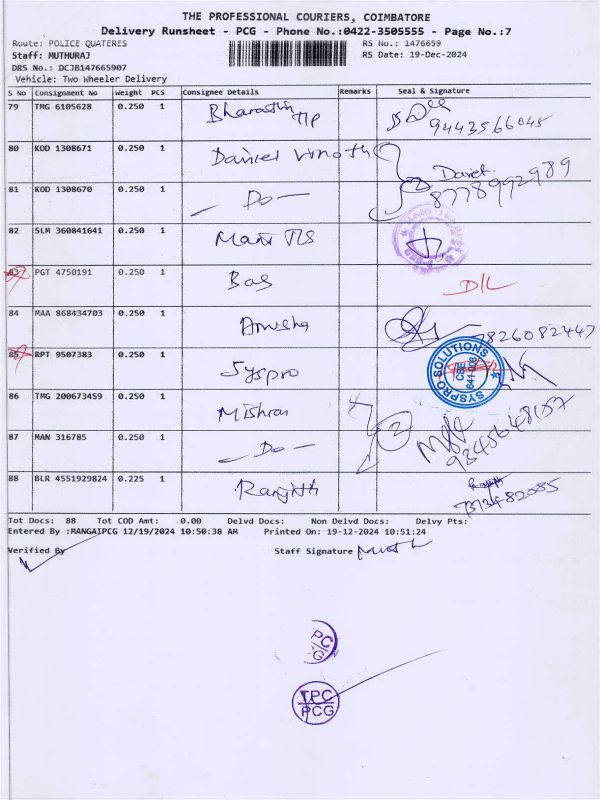 THE PROFESSIONAL COURIERS, COIMBATORE
Delivery Runsheet - PCG - Phone No.:0422-3505555 - Page No.:7
Route: POLICE QUATERES RS No.: 1476659
Staff: MUTHURAJ RS Date: 19-Dec-2024
DRS No.: DCJB147665907
Vehicle: Two Wheeler Delivery
S No Consignment No Weight PCS Consignee Details Remarks Seal & Signature
79 TMG 6105628 0.250 1 9443566045
80 KOD 1308671 0.250 1 Daniel Vinoth
81 KOD 1308670 0.250 1 — Do — 8778992989
82 SLM 360841641 0.250 1 Mani TLS
83 PGT 4750191 0.250 1 Bas D/L
84 MAA 868434703 0.250 1 Anusha 7826082447
85 RPT 9507383 0.250 1 Syspro SYSPRO SOLUTIONS CBE 641 008
86 TMG 200673459 0.250 1
87 MAN 316785 0.250 1 — Do — 2 9345648157
88 BLR 4551929824 0.225 1 Ranjith
Tot Docs: 88 Tot COD Amt: 0.00 Delvd Docs: Non Delvd Docs: Delvy Pts:
Entered By :MANGAIPCG 12/19/2024 10:50:38 AM Printed On: 19-12-2024 10:51:24
Verified By Staff Signature
PC/G
TPC
PCG